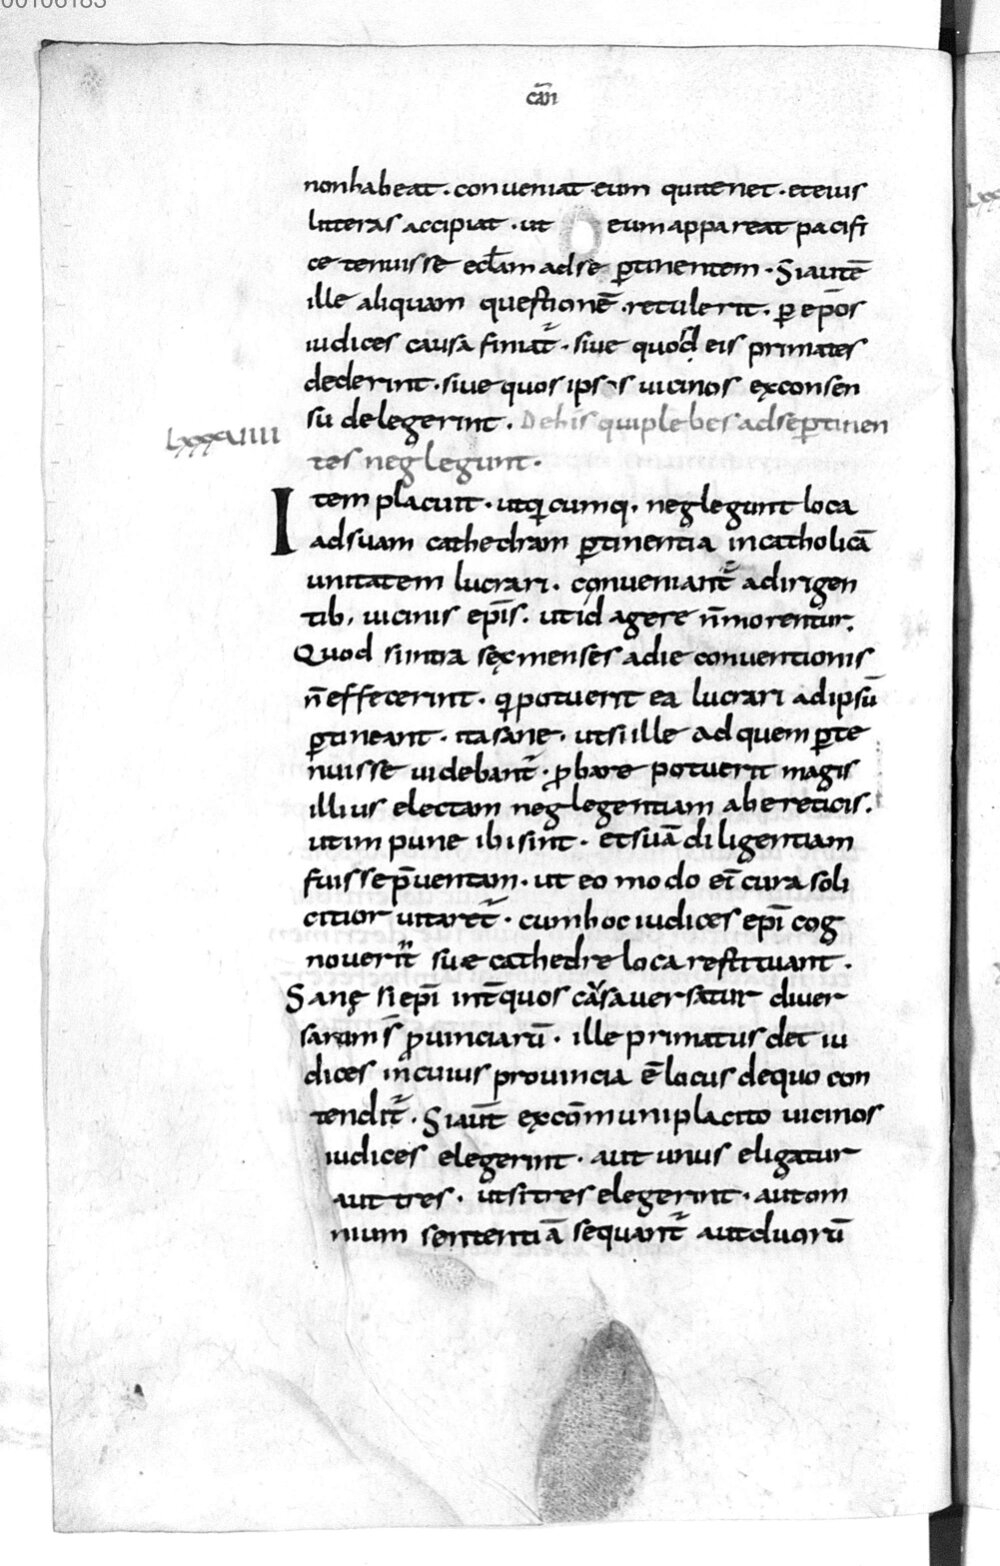 00106183
cāñ
non habeat · conueniat eum qui tenet · et eius
litteras accipiat · ut eum appareat pacifi
ce tenuisse eccl̄am ad se ꝑtinentem · Si autē
ille aliquam questionē retulerit · ꝑ ep̄os
iudices causa finiat᷑ · siue quod eis primates
dederint · siue quos ipsos uicinos ex consen
su delegerint · De his qui plebes ad se ꝑtinen
lxxxuiiii
tes neglegunt ·
Item placuit · ut qicumq · neglegunt loca
ad suam cathedram ꝑtinentia in catholicā
unitatem lucrari · conueniant᷑ a dirigen
tib, uicinis ep̄is · ut id agere n̄ morentur.
Quod si intra sęx menses a die conuentionis
n̄ effecerint · qi potuerit ea lucrari ad ipsū
ꝑtineant · ita sane · ut si ille ad quem ꝑte
nuisse uidebant᷑ · ꝓbare potuerit magis
illius electam neglegentiam ab ereticis.
ut impune ibi sint · et suā diligentiam
fuisse p̄uentam · ut eo modo ei᷑ cura soli
citior uitaret᷑ · cum hoc iudices ep̄i cog
nouerit̄ sue cathedre loca restituant ·
Sanę si ep̄i int̄ quos causa uersatur diuer
sarum s̄ ꝓuinciarū · ille primatus det iu
dices in cuius prouincia ē locus de quo con
tendit᷑ · Si aut̄ ex cōmuni placito uicinos
iudices elegerint · aut unus eligatur
aut tres · ut si tres elegerint · aut om
nium sententiā sequant᷑ aut duorū